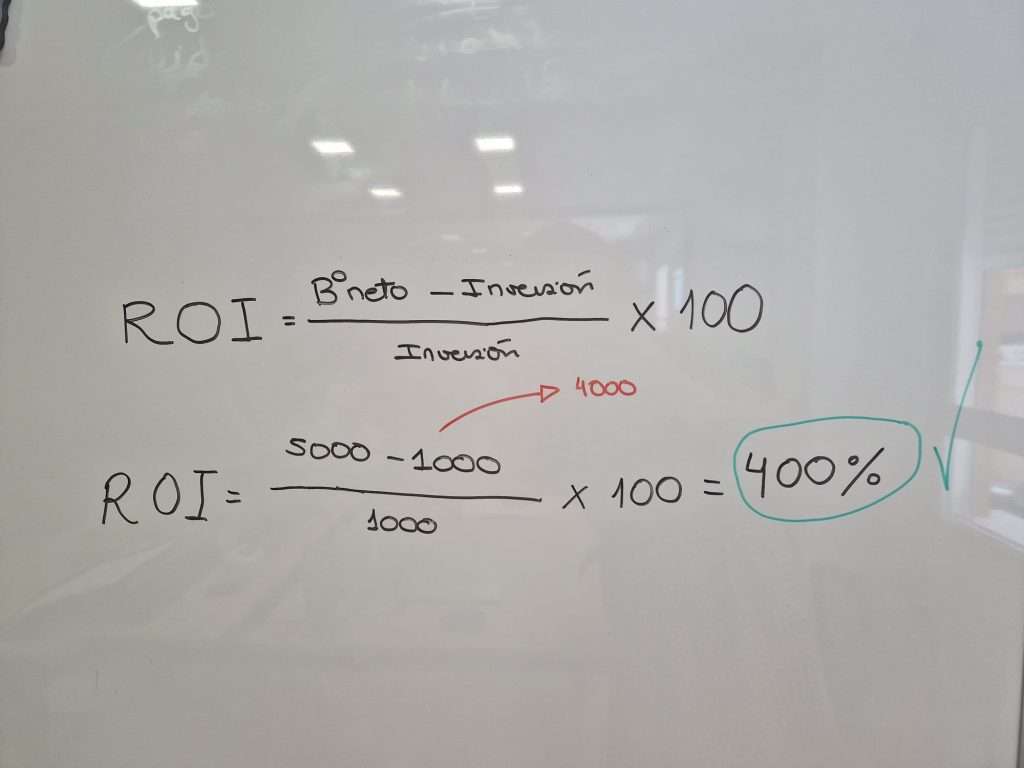 ROI = Bº neto - Inversión / Inversión x 100
4000
ROI = 5000 - 1000 / 1000 x 100 = 400%